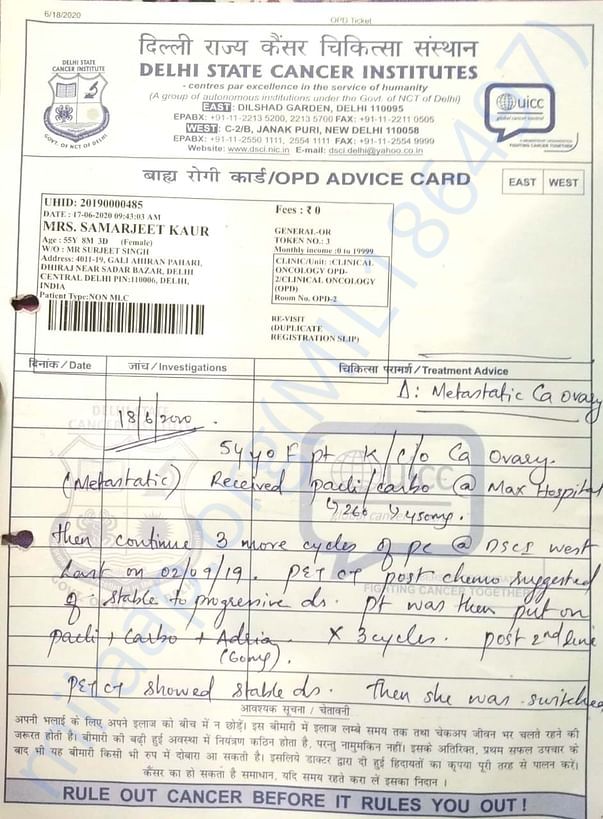 6/18/2020
OPD Ticket
दिल्ली राज्य कैंसर चिकित्सा संस्थान
DELHI STATE CANCER INSTITUTES
- centres par excellence in the service of humanity
(A group of autonomous institutions under the Govt. of NCT of Delhi)
EAST: DILSHAD GARDEN, DELHI 110095
EPABX: +91-11-2213 5200, 2213 5700 FAX: +91-11-2211 0505
WEST: C-2/B, JANAK PURI, NEW DELHI 110058
EPABX: +91-11-2550 1111, 2554 1111 FAX: +91-11-2554 9999
Website: www.dsci.nic.in E-mail: dsci.delhi@yahoo.co.in
DELHI STATE
CANCER INSTITUTE
GOVT. OF NCT OF DELHI
uicc
global cancer control
A MEMBERSHIP ORGANISATION
FIGHTING CANCER TOGETHER
बाह्य रोगी कार्ड/OPD ADVICE CARD
EAST WEST
UHID: 20190000485
DATE : 17-06-2020 09:43:03 AM
MRS. SAMARJEET KAUR
Age : 55Y 8M 3D (Female)
W/O : MR SURJEET SINGH
Address: 4011-19, GALI AHIRAN PAHARI,
DHIRAJ NEAR SADAR BAZAR, DELHI
CENTRAL DELHI PIN:110006, DELHI,
INDIA
Patient Type:NON MLC
Fees : ₹ 0
GENERAL-OR
TOKEN NO.: 3
Monthly income :0 to 19999
CLINIC/Unit: :CLINICAL
ONCOLOGY OPD-
2/CLINICAL ONCOLOGY
(OPD)
Room No. OPD-2
RE-VISIT
(DUPLICATE
REGISTRATION SLIP)
दिनांक / Date जांच / Investigations चिकित्सा परामर्श / Treatment Advice
Δ: Metastatic Ca Ovary
18/6/2020.
54 yo F pt K/c/o Ca Ovary.
(Metastatic) Received pacli/carbo @ Max Hospital
↳260 ↳450mg.
then continue 3 more cycles of PC @ DSCI west
Last on 02/09/19. PET CT post chemo suggested
of stable to progressive ds. pt was then put on
pacli + Carbo + Adria X 3cycles. post 2nd line
(60mg).
PET CT showed stable ds. Then she was switched
uicc
global cancer control
FIGHTING CANCER TOGETHER
आवश्यक सूचना / चेतावनी
अपनी भलाई के लिए अपने इलाज को बीच में न छोड़ें। इस बीमारी में इलाज लम्बे समय तक तथा चेकअप जीवन भर चलते रहने की
जरूरत होती है। बीमारी की बढ़ी हुई अवस्था में नियंत्रण कठिन होता है, परन्तु नामुमकिन नहीं। इसके अतिरिक्त, प्रथम सफल उपचार के
बाद भी यह बीमारी किसी भी रुप में दोबारा आ सकती है। इसलिये डाक्टर द्वारा दी हुई हिदायतों का कृपया पूरी तरह से पालन करें।
कैंसर का हो सकता है समाधान, यदि समय रहते करा लें इसका निदान ।
RULE OUT CANCER BEFORE IT RULES YOU OUT !
milaap.org(MIL186497)